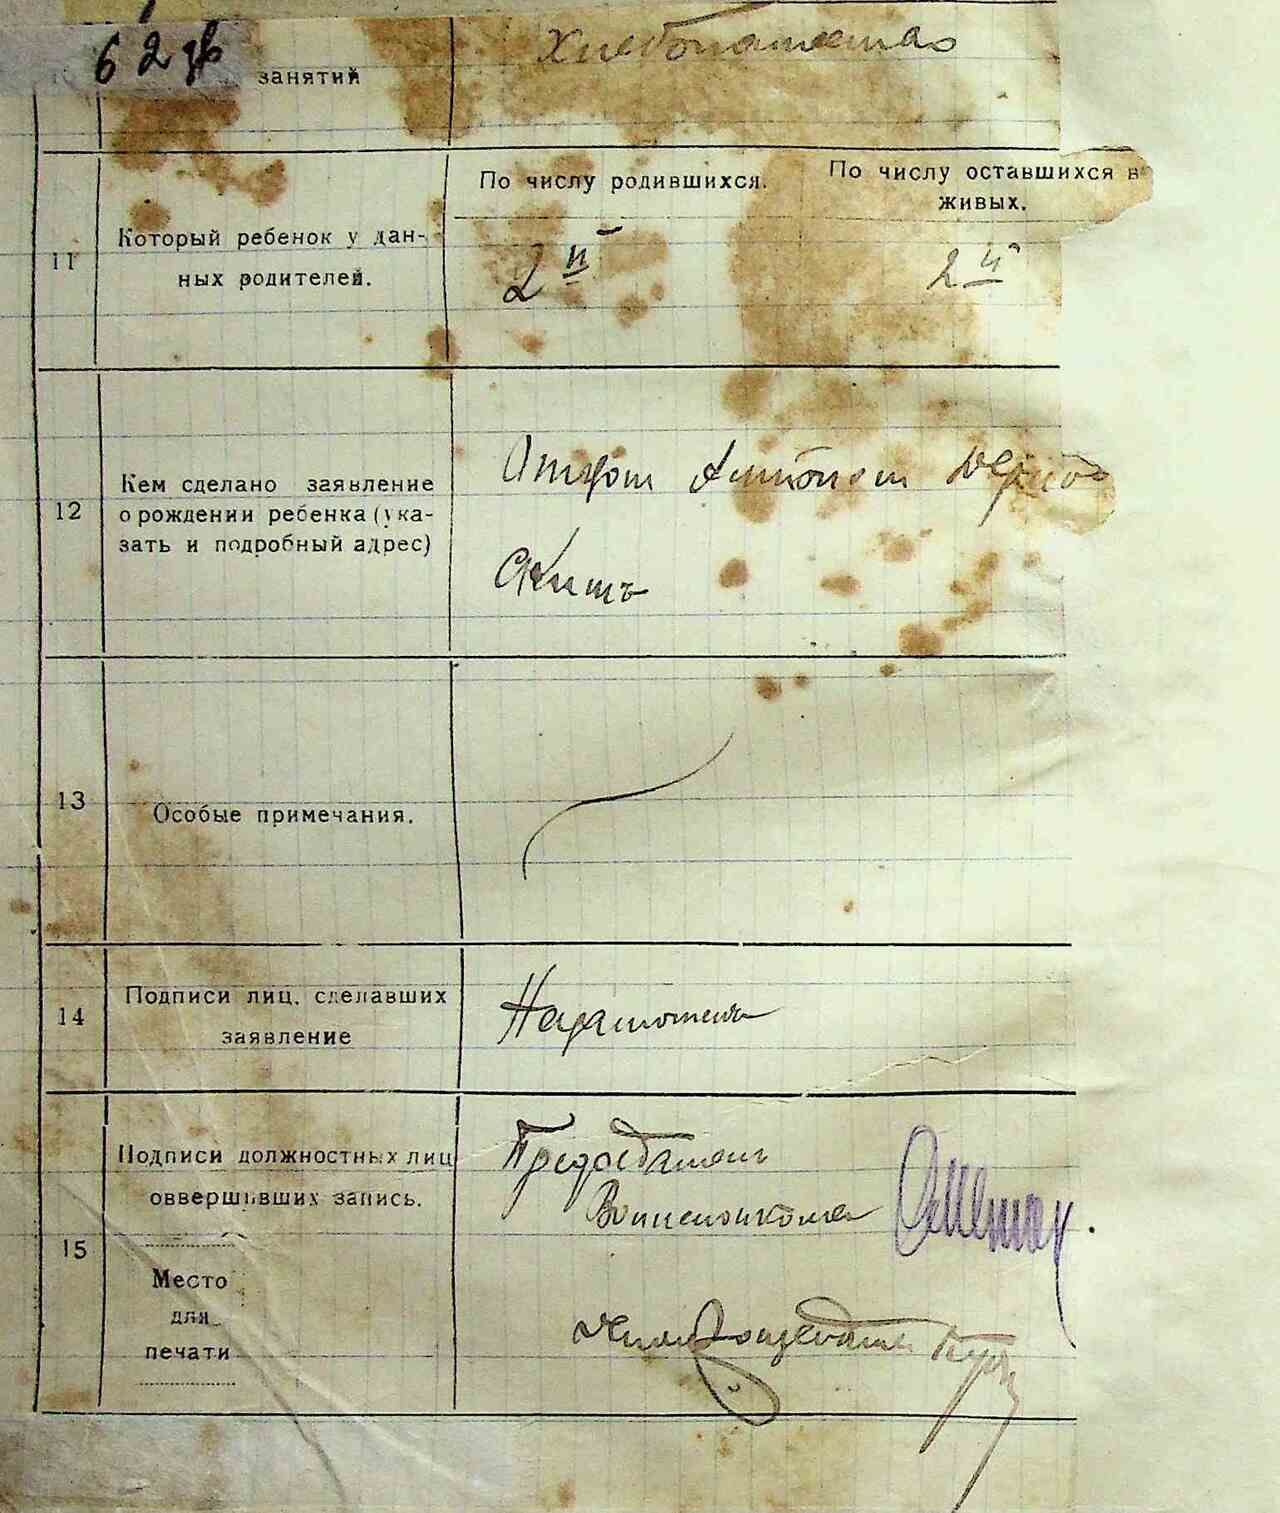 62 зв
занятий
Хлебопашество
11
Который ребенок у дан-
ных родителей.
По числу родившихся.
2й
По числу оставшихся в
живых.
2й
12
Кем сделано заявление
о рождении ребенка (ука-
зать и подробный адрес)
Отцом Антоном
13
Особые примечания.
14
Подписи лиц, сделавших
заявление
Неграмотен
15
Подписи должностных лиц
оввершивших запись.
Место
для
печати
Председатель
Волисполкома
Делопроизводитель